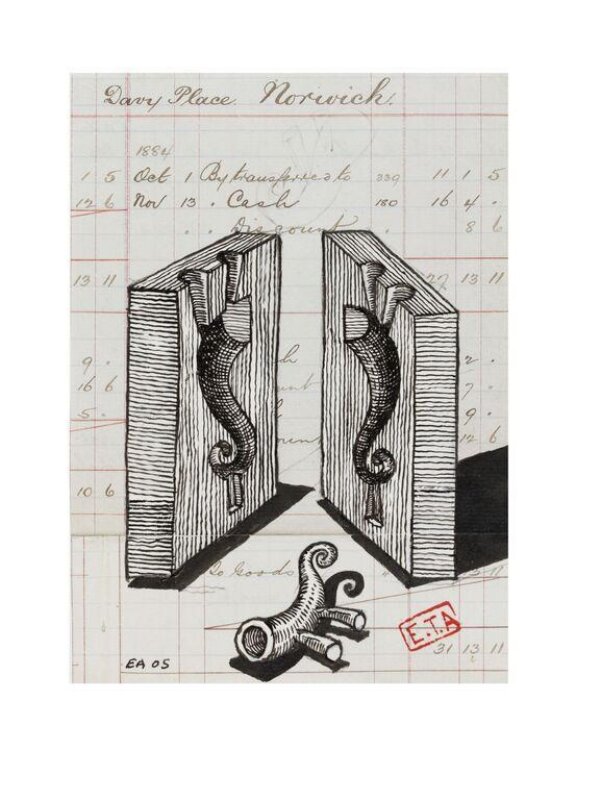 Davy Place. Norwich.
1884
1 5 Oct 1 By transferred to 339 11 1 5
12 6 Nov 13 . Cash 180 16 4 .
. . Discount . 8 6
13 11 27 13 11
9 . 2 .
16 6 7 .
5 . 9 .
12 6
10 6
To Goods 11
E.T.A
31 13 11
EA 05